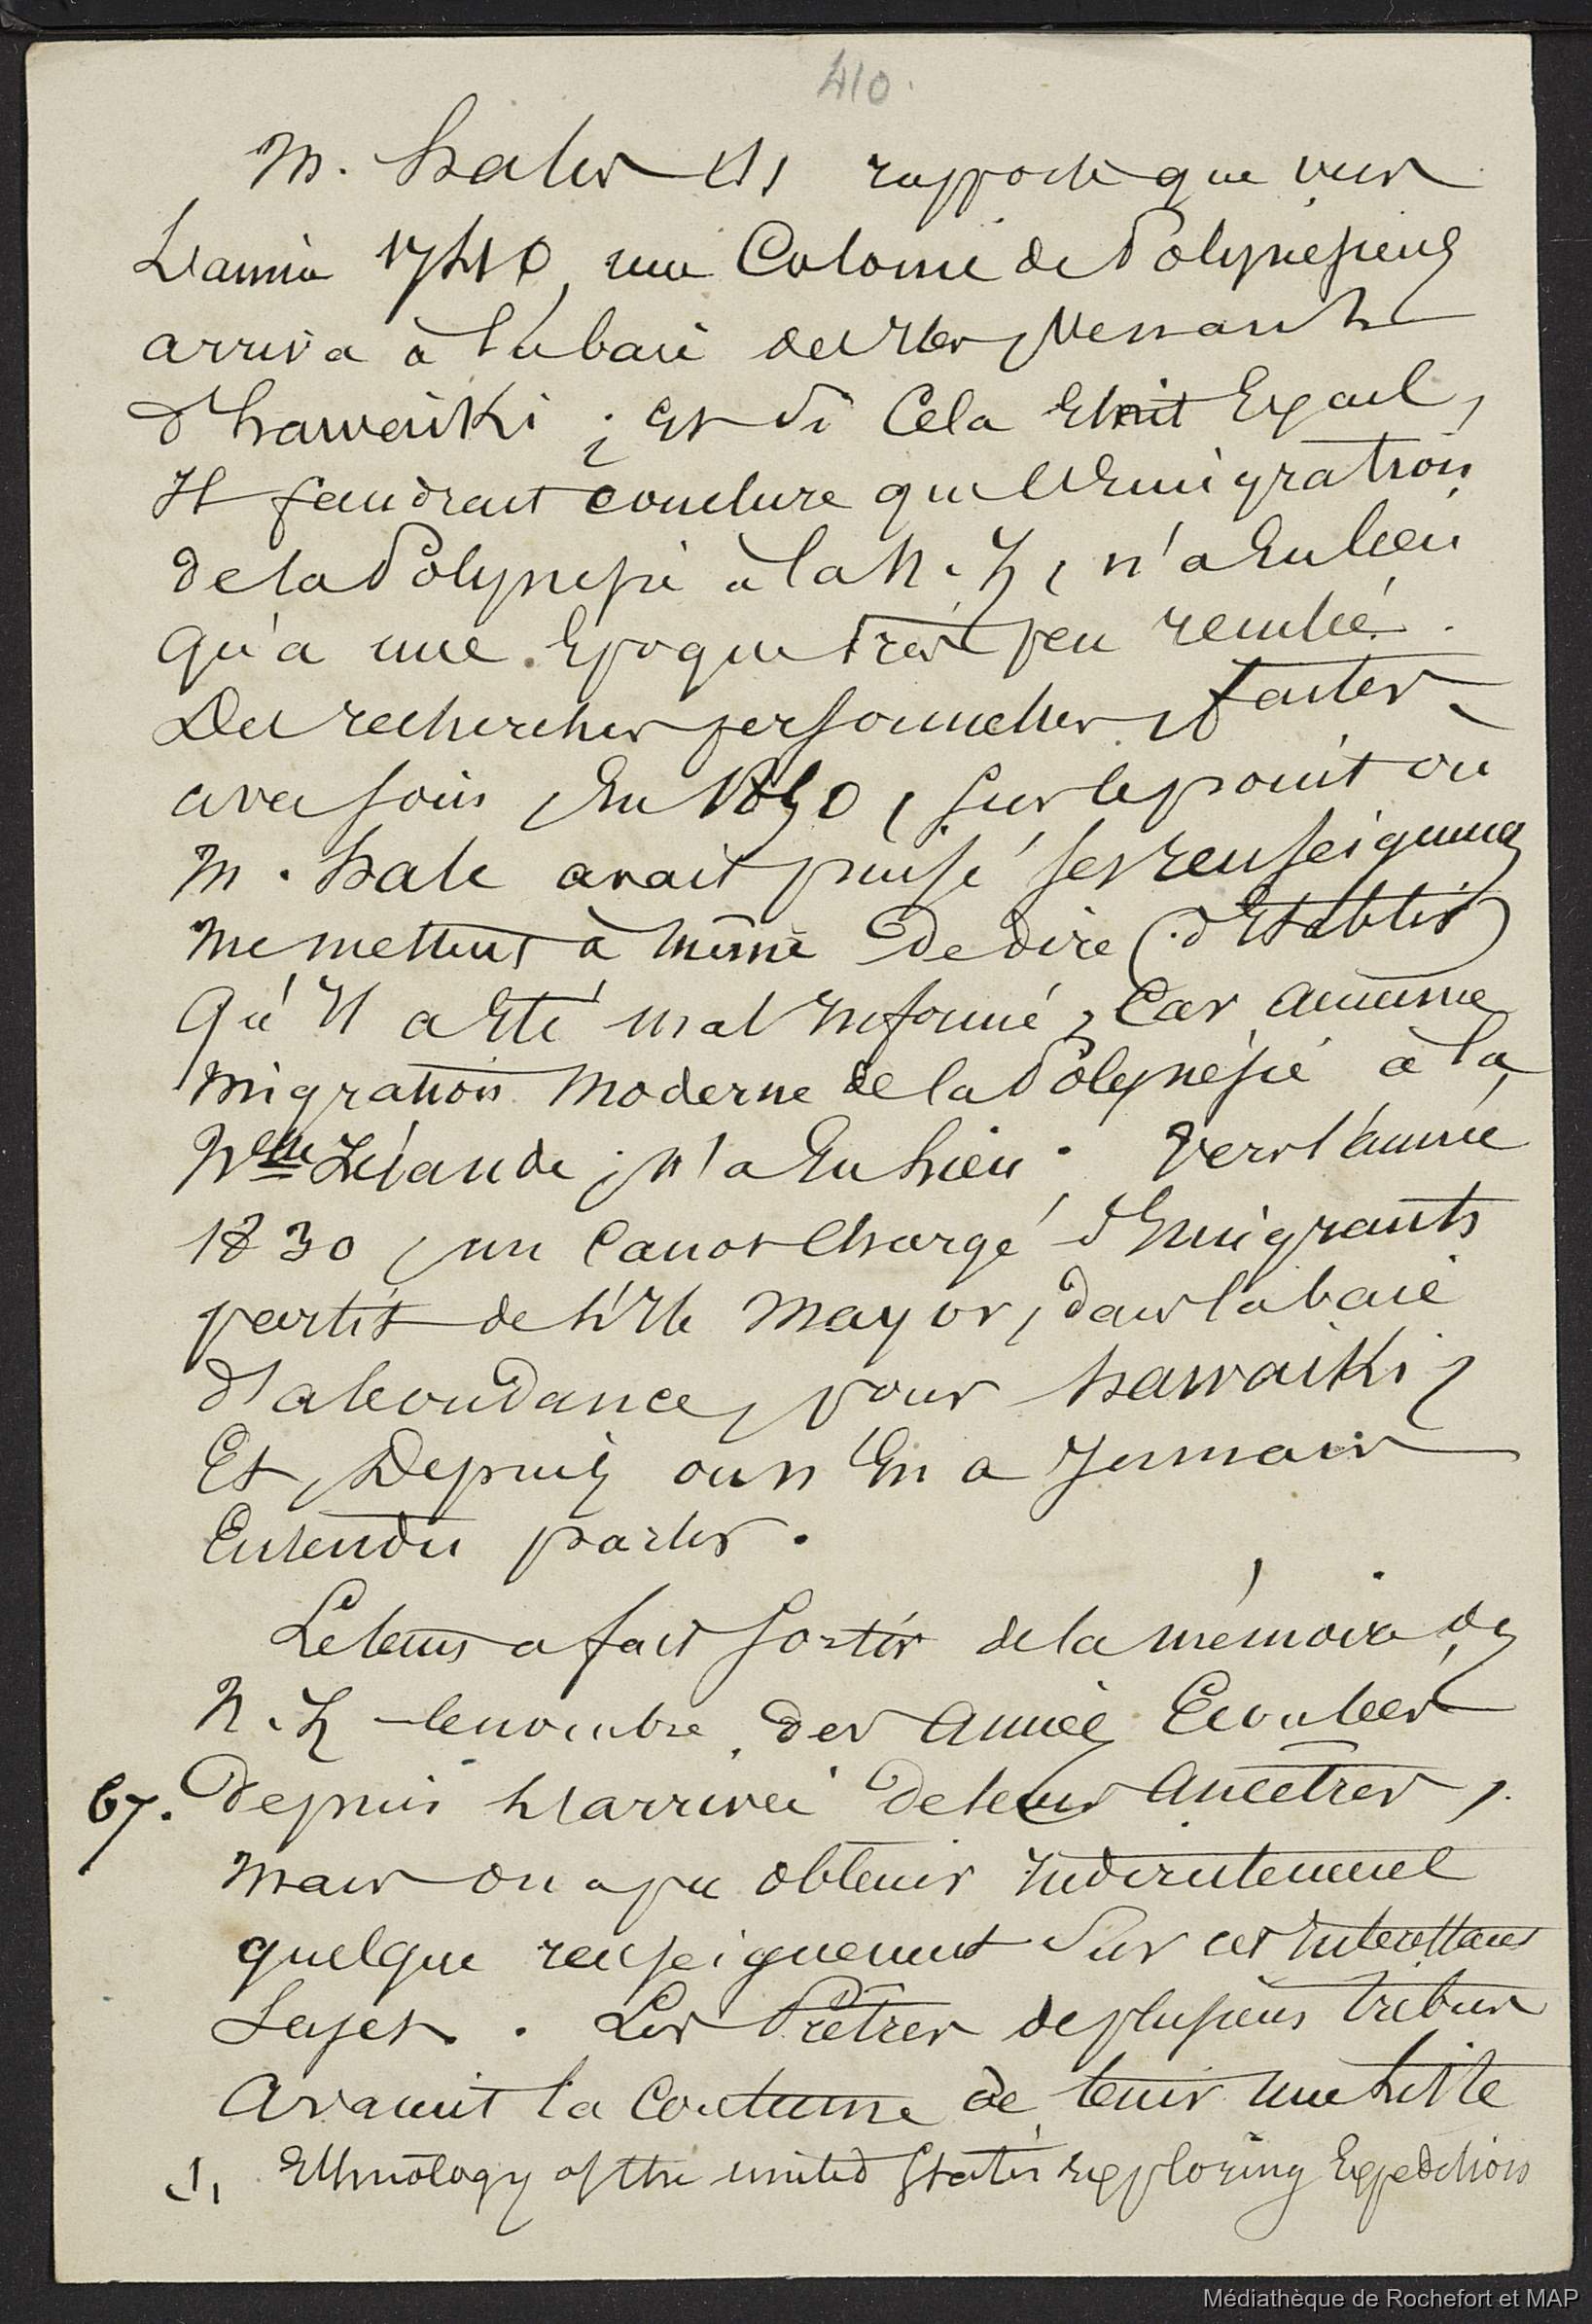 410.
M. hales (1) rapporte que vers
L'année 1740, une Colonie de Polynesiens
arriva à la baie des Iles, Venant
d'hawaiki ; Et Si Cela Etait Exact,
Il faudrait conclure que l'Emigration
de la Polynesie à la N. Z, n'a Eu lieu
qu'a une Epoque très peu reculée.
Des recherches personnelles, faites
avec soin, En 1850, sur le point où
M. hale avait puisé ses renseignemens
me mettent à même De dire (d'Etablir)
Qu'Il a Eté mal Informé, Car aucune
migration moderne de la Polynésie à la
Nelle Zélande, n'a Eu Lieu. Vers l'année
1830, un Canot Chargé d'Emigrants
partit de l'Ile Mayor, dans la baie
d'abondance, pour hawaiki,
Et, Depuis on n'En a Jamais
Entendu parler.
Le tems a fait Sortir de la mémoire des
N. Z le nombre des années Ecoulées
67. depuis l'arrivée de leurs Ancêtres,
mais on a pu obtenir Indirectement
quelque renseignement Sur cet Intéressant
Sujet. Les Prêtres de plusieurs tribus
Avaient la Coutume de tenir une liste
(1) Ethnology of the united States Exploring Expedition
Médiathèque de Rochefort et MAP